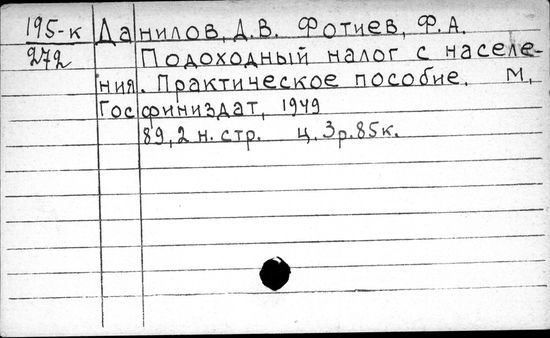 195-к Данилов, Д.В. Фотиев, Ф.А.
272 Подоходный налог с населе-
ния. Практическое пособие. М,
Госфиниздат, 1949
89, 2 н. стр. ц. 3р. 85к.